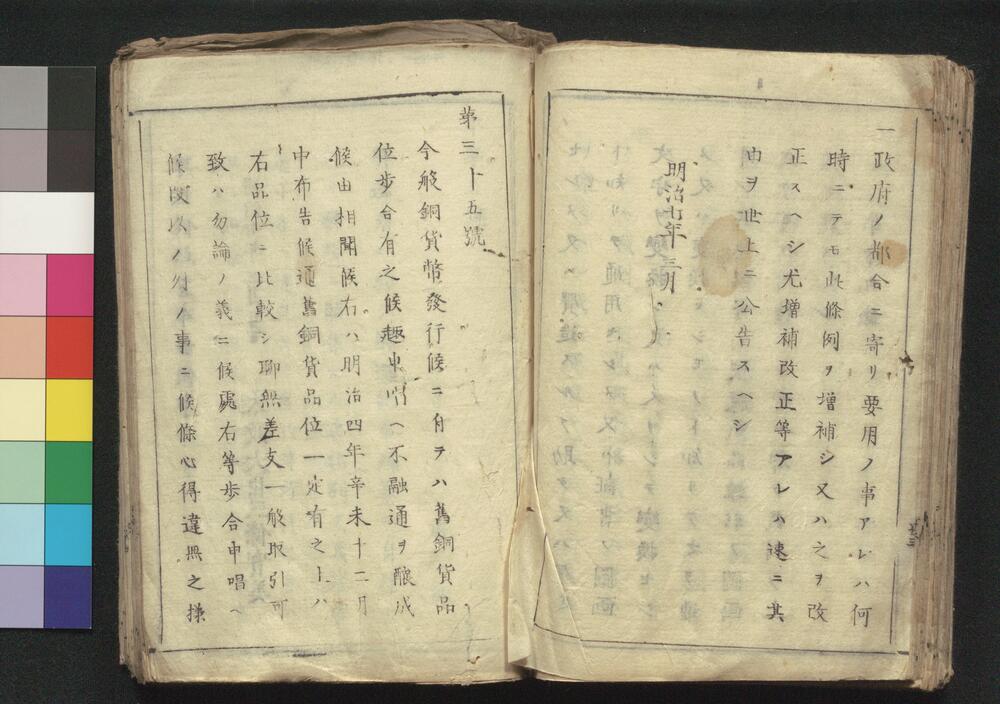 一政府ノ都合ニ寄リ要用ノ事アレハ何
時ニテモ此條例ヲ増補シ又ハ之ヲ改
正スヘシ尤増補改正等アレハ速ニ其
由ヲ世上ニ公告スヘシ
明治七年三月
第三十五號
今般銅貨幣發行候ニ自ラハ舊銅貨品
位歩合有之候趣申唱ヘ不融通ヲ醸成
候由相聞候右ハ明治四年辛未十二月
中布告候通舊銅貨品位一定有之上ハ
右品位ニ比較シ聊無差支一般取引可
致ハ勿論ノ義ニ候處右等歩合申唱ヘ
候段以ノ外ノ事ニ候條心得違無之様